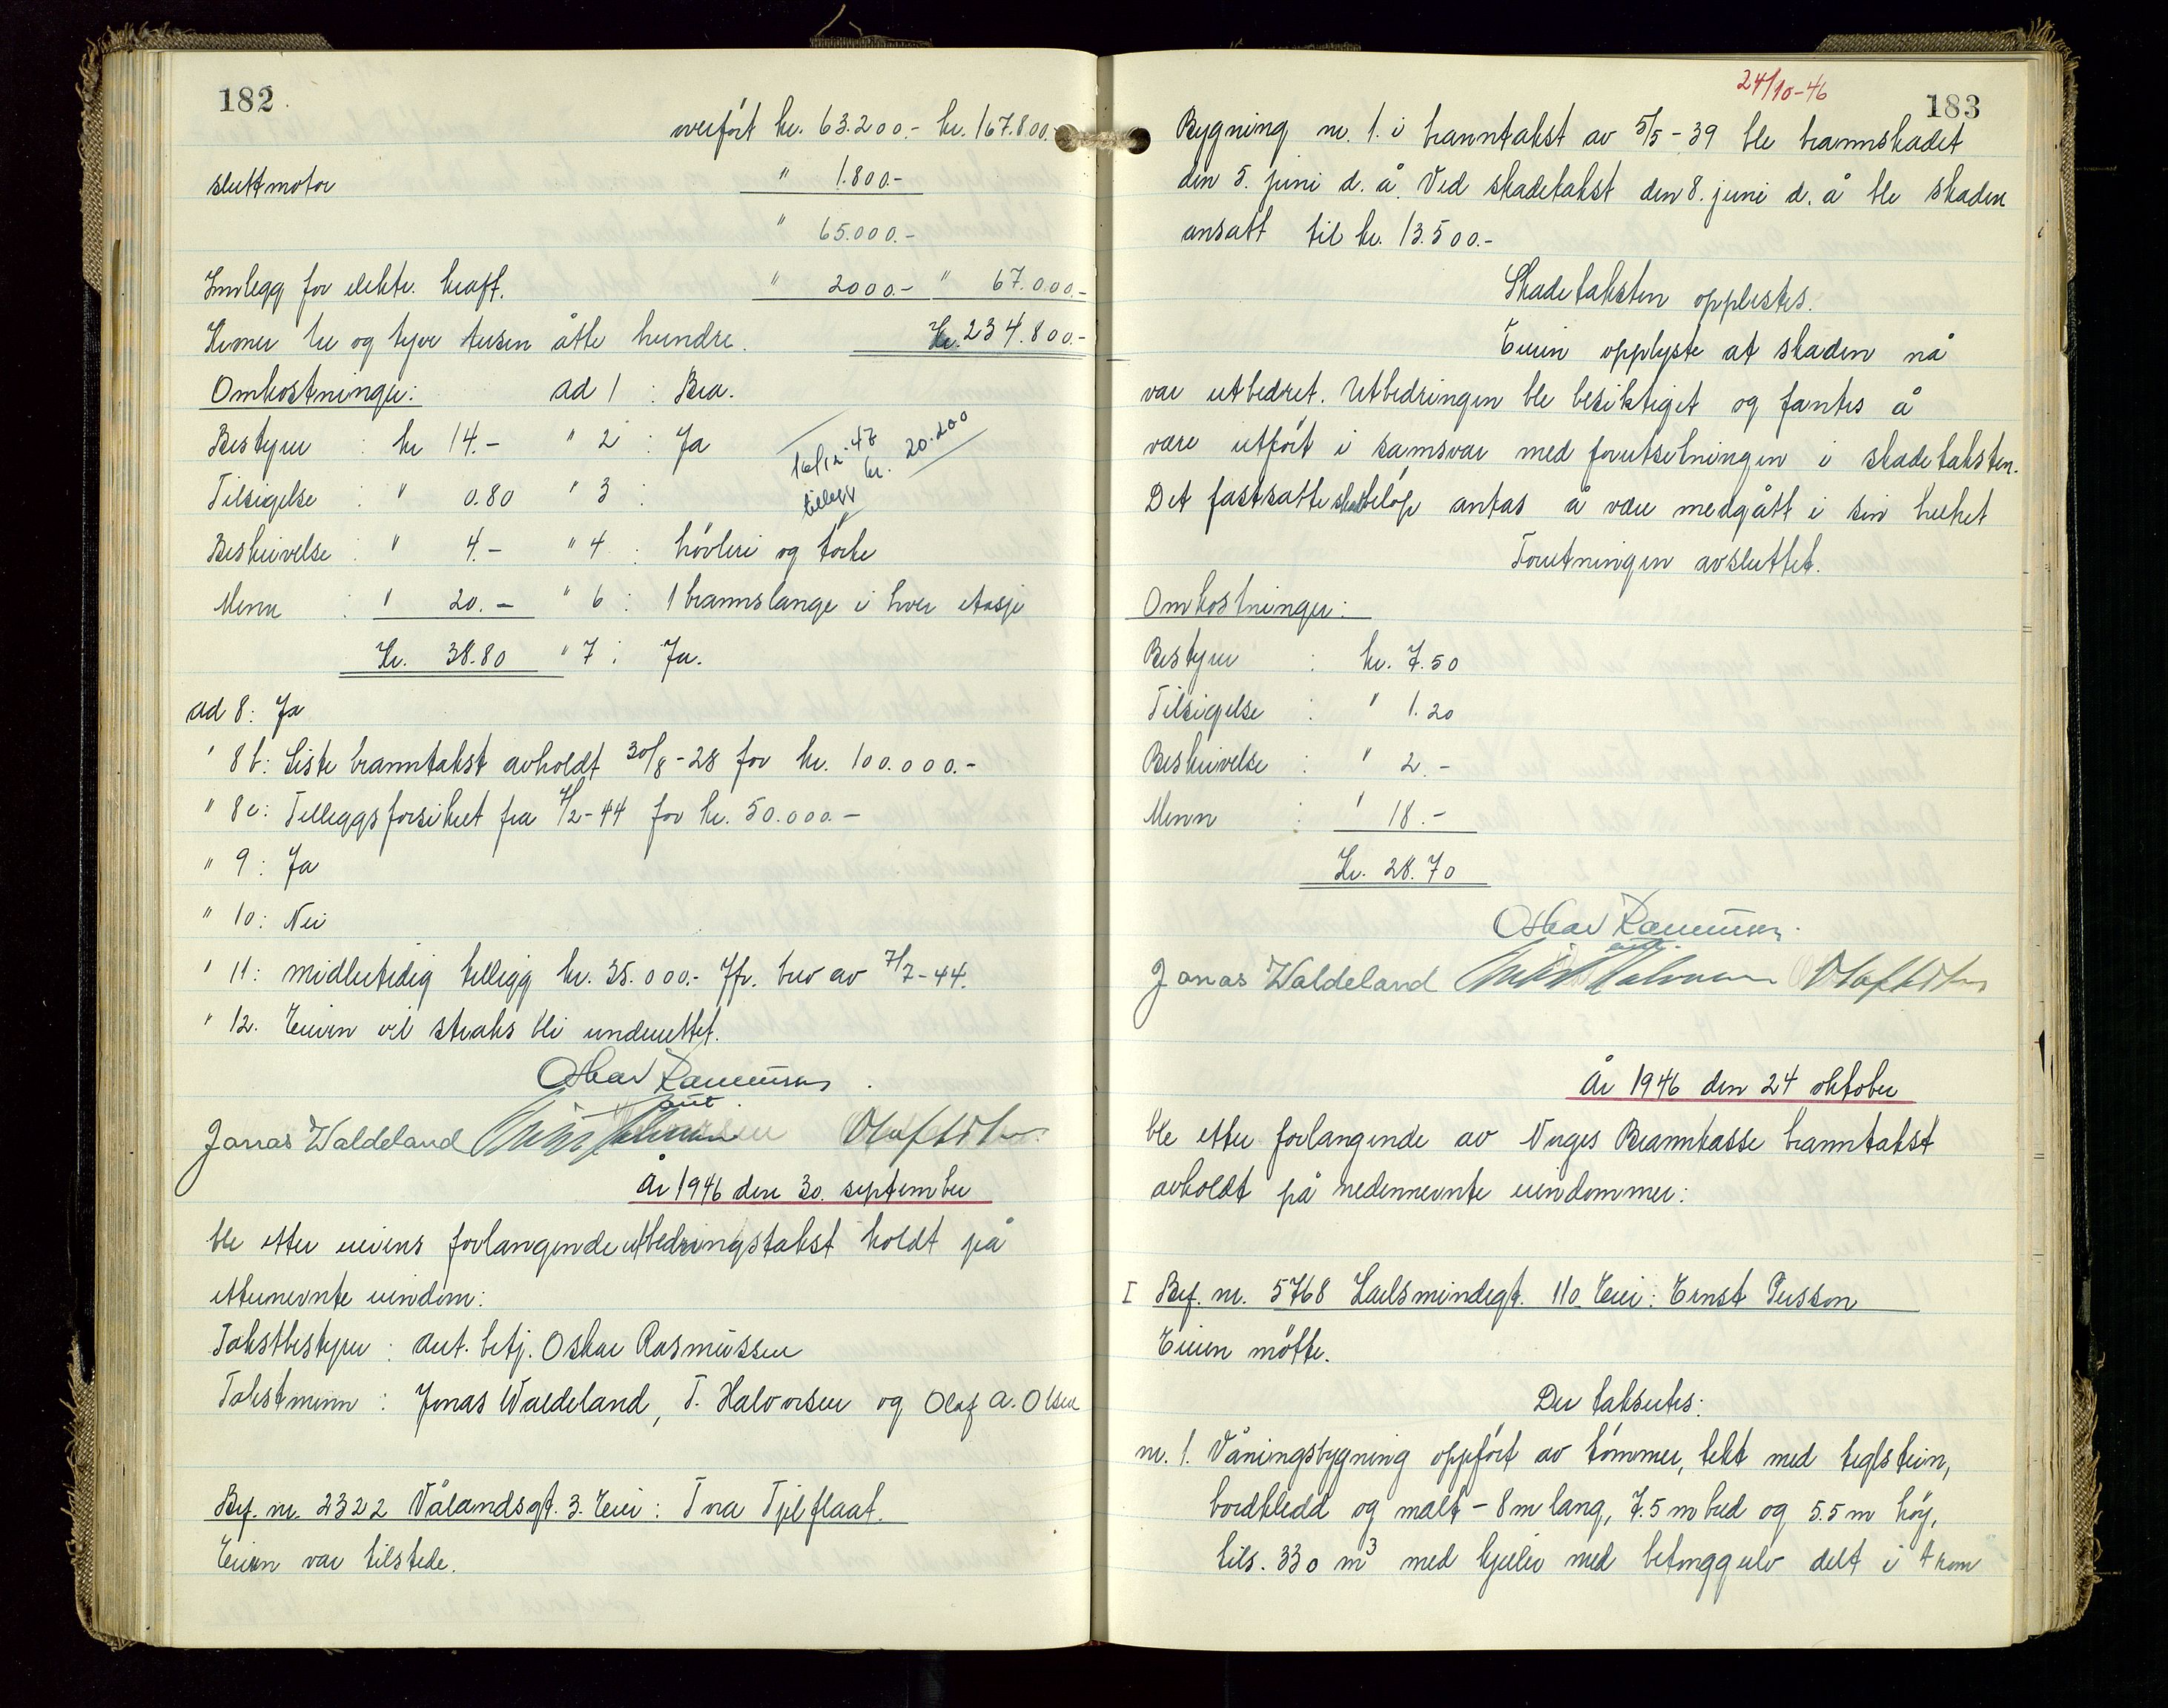 182
overført kr. 63.200.- kr. 167.800.-
sluttmotor " 1.800.-
" 65.000.-
Innlegg for elektr. kraft. " 2000.- " 67.000.-
og tyve tusen åtte hundre. Kr. 234.800.-
Omkostninger: ad 1 : Bra.
Bestyrer : kr 14.- " 2 : Ja
16/12-47 kr. 20.200
tillegg
Tilsigelse : " 0.80 " 3 :
Beskrivelse : " 4.- " 4 : høvleri og tørke
Menn : " 20.- " 6 : 1 brannslange i hver etasje
Kr. 38.80 " 7 : Ja.
ad 8: Ja
" 8b: Siste branntakst avholdt 30/8-28 for kr. 100.000.-
" 8c: Tilleggsforsikret fra 7/2-44 for kr. 50.000.-
" 9 : Ja
" 10: Nei
" 11: midlertidig tillegg kr. 35.000.- Jfr. brev av 7/2-44.
" 12. Eieren vil straks bli underrettet.
Oskar Rasmussen
aut.
Jonas Waldeland Olaf A Olsen
År 1946 den 30. september
ble etter eierens forlangende utbedringstakst holdt på
etternevnte eiendom:
Takstbestyrer : aut. betj. Oskar Rasmussen
Takstmenn : Jonas Waldeland, T. Halvorsen og Olaf A. Olsen
Bref. nr. 2322 Vålandsgt. 3. Eier : Tora Tjelflaat.
Eieren var tilstede.
24/10-46
183
Bygning nr. 1. i branntakst av 5/5-39 ble brannskadet
den 5. juni d. å. Ved skadetakst den 8. juni d. å ble skaden
ansatt til kr. 13.500.-
Skadetaksten opplestes.
Eieren opplyste at skaden nå
var utbedret. Utbedringen ble besiktiget og fantes å
være utført i samsvar med forutsetningen i skadetaksten.
Det fastsatte skadebeløp antas å være medgått i sin helhet
Forretningen avsluttet.
Omkostninger:
Bestyrer : kr. 7.50
Tilsigelse : " 1.20
Beskrivelse : " 2.-
Menn : " 18.-
Kr. 28.70
Oskar Rasmussen.
aut.
Jonas Waldeland Olaf A Olsen
År 1946 den 24 oktober
ble etter forlangende av Norges Brannkasse branntakst
avholdt på nedennevnte eiendommer:
I Bref. nr. 5768 Karlsmindegt. 110 Eier: Ernst Persson
Eieren møtte.
Der takseres:
nr. 1. Våningsbygning oppført av tømmer, tekt med teglstein,
bordkledd og malt - 8 m lang, 7.5 m bred og 5.5 m høy,
tils. 330 m3 med kjeller med betonggulv delt i 4 rom